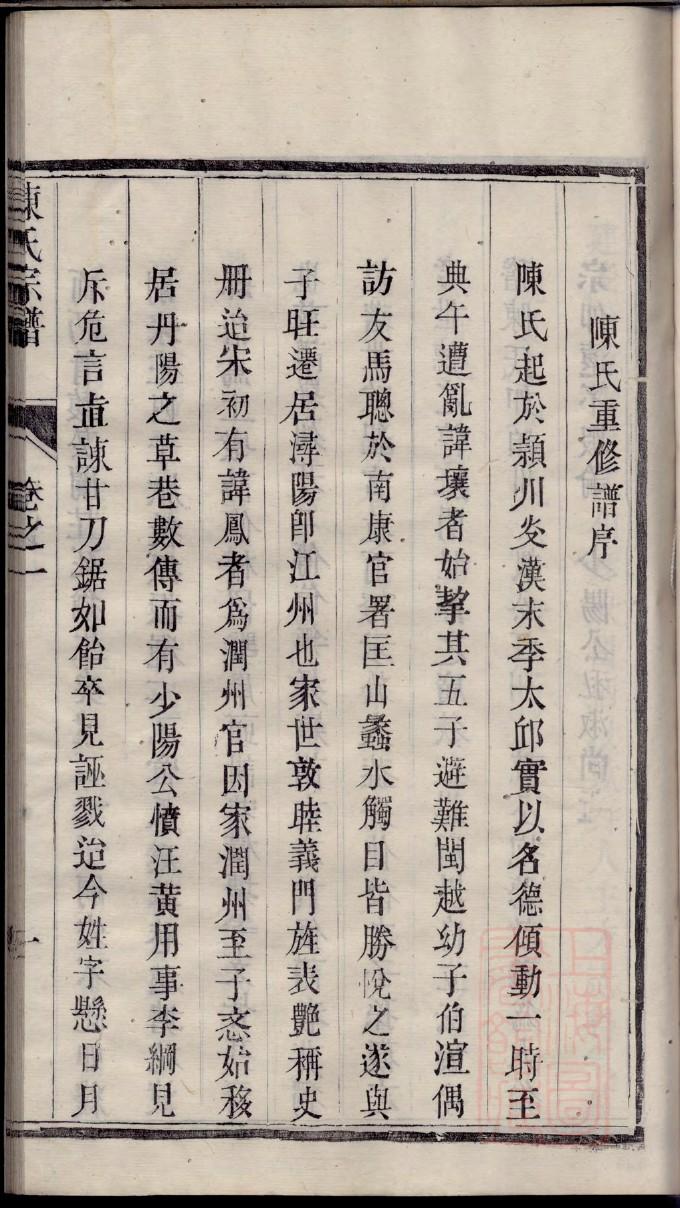 陳氏重修譜序
陳氏起於潁川炎漢末季太邱實以名德傾動一時至
典午遭亂諱壤者始挈其五子避難閩越幼子伯渲偶
訪友馬聰於南康官署匡山蠡水觸目皆勝悅之遂與
子旺遷居潯陽卽江州也家世敦睦義門旌表艷稱史
冊迨宋初有諱鳳者爲潤州官因家潤州至子忞始移
居丹陽之草巷數傳而有少陽公憤汪黃用事李綱見
斥危言直諫甘刀鋸如飴卒見誣戮迨今姓字懸日月
陳氏宗譜 卷之一 一